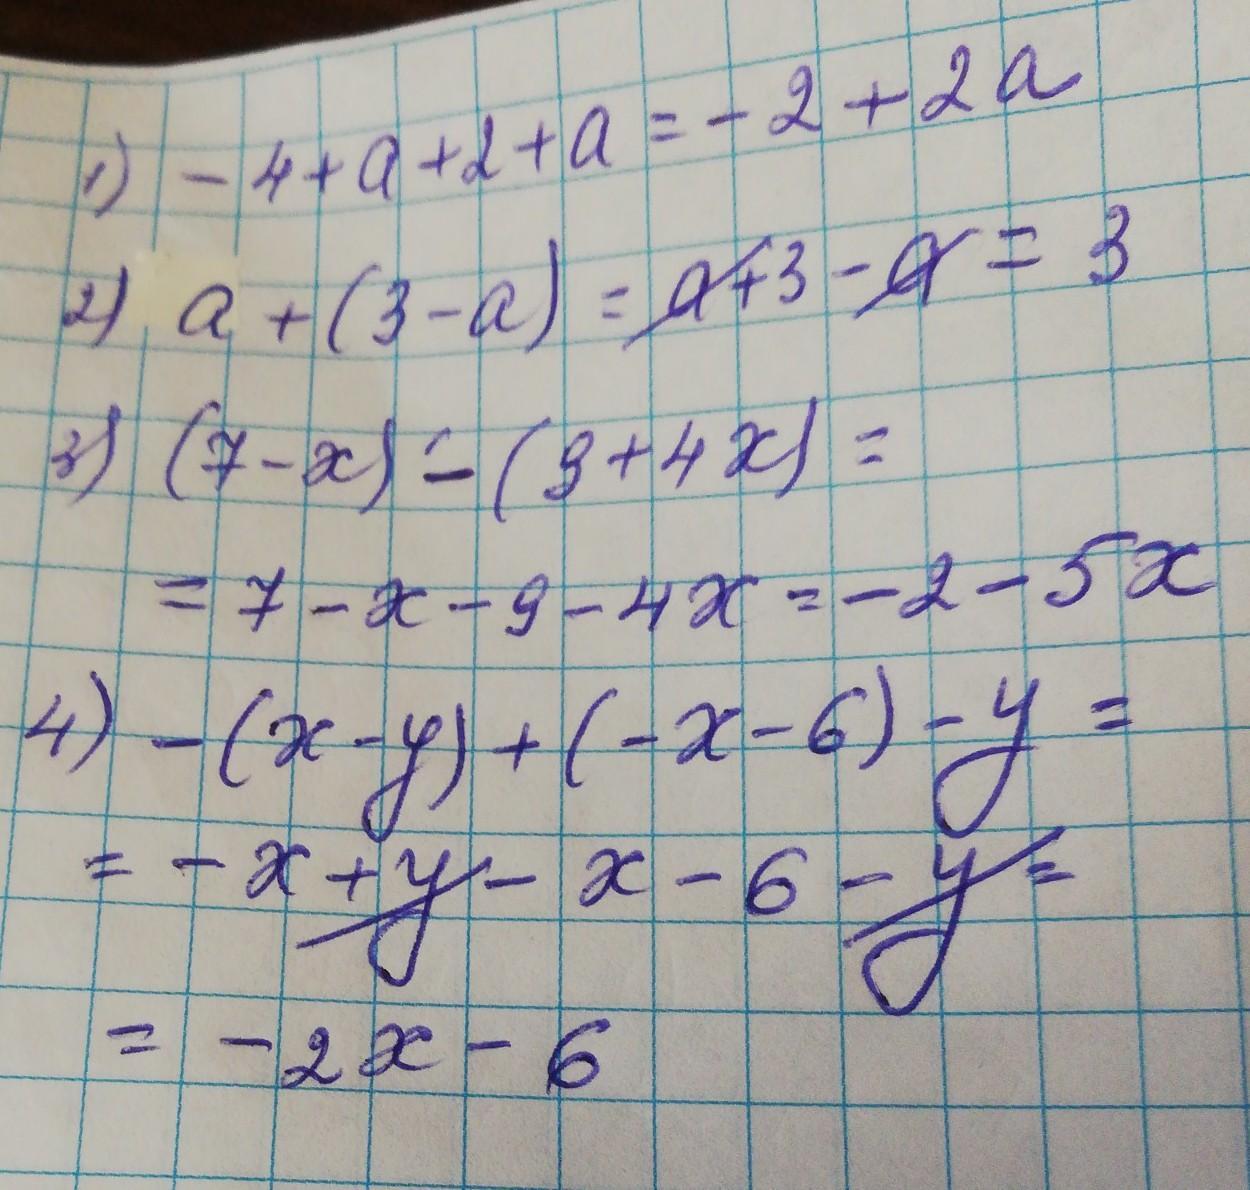 1) - 4 + a + 2 + a = - 2 + 2a
2) a + (3 - a) = a + 3 - a = 3
3) (7 - x) - (9 + 4x) =
= 7 - x - 9 - 4x = - 2 - 5x
4) - (x - y) + (- x - 6) - y =
= - x + y - x - 6 - y =
= - 2x - 6